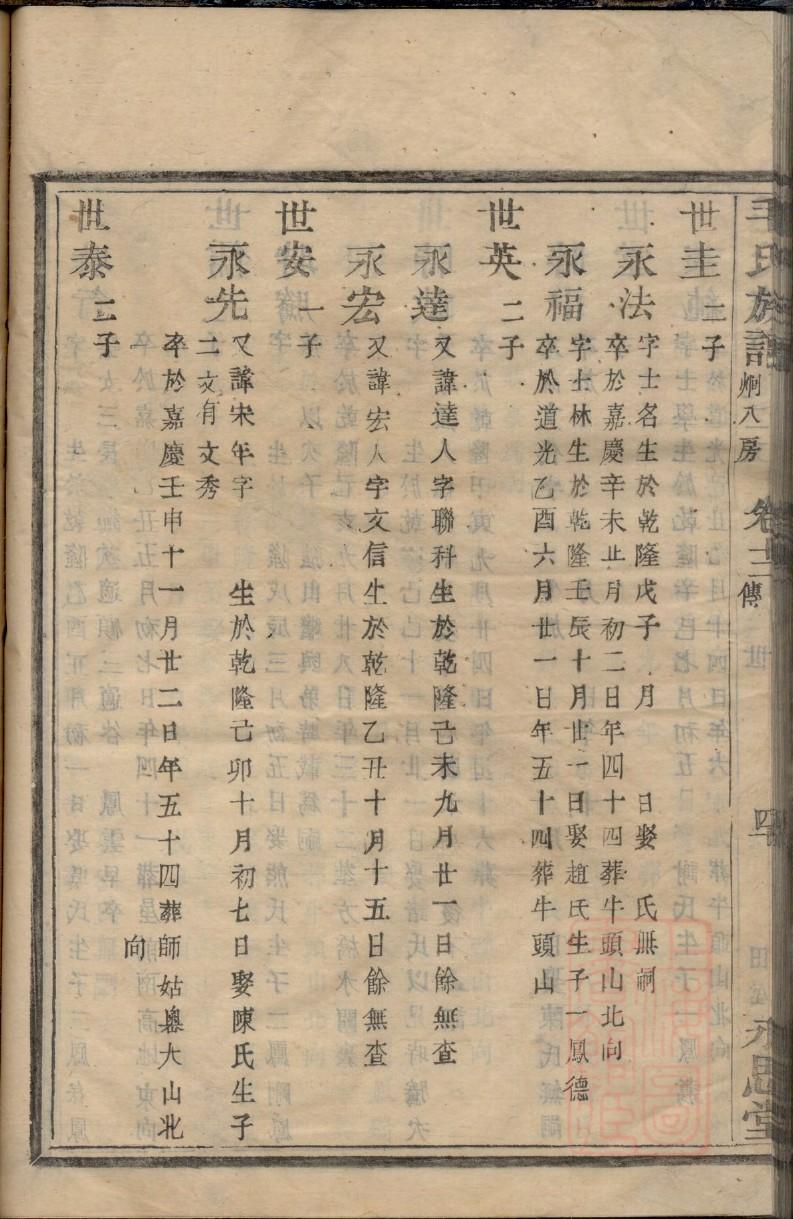 毛氏族譜 炯八房 卷十二 傳 世 四 永思堂
世圭 二子
永法 字士名生於乾隆戊子 月 日娶 氏無嗣
卒於嘉慶辛未正月初二日年四十四葬牛頭山北向
永福 字士林生於乾隆壬辰十月廿一日娶趙氏生子一鳳德
卒於道光乙酉六月廿一日年五十四葬牛頭山
世英 二子
永達 又諱達人字聯科生於乾隆己未九月廿一日餘無查
永宏 又諱宏人字文信生於乾隆乙丑十月十五日餘無查
世安 一子
永先 又諱宋年字 生於乾隆己卯十月初七日娶陳氏生子
二文有文秀
卒於嘉慶壬申十一月廿二日年五十四葬師姑嶴大山北
向
世泰 二子